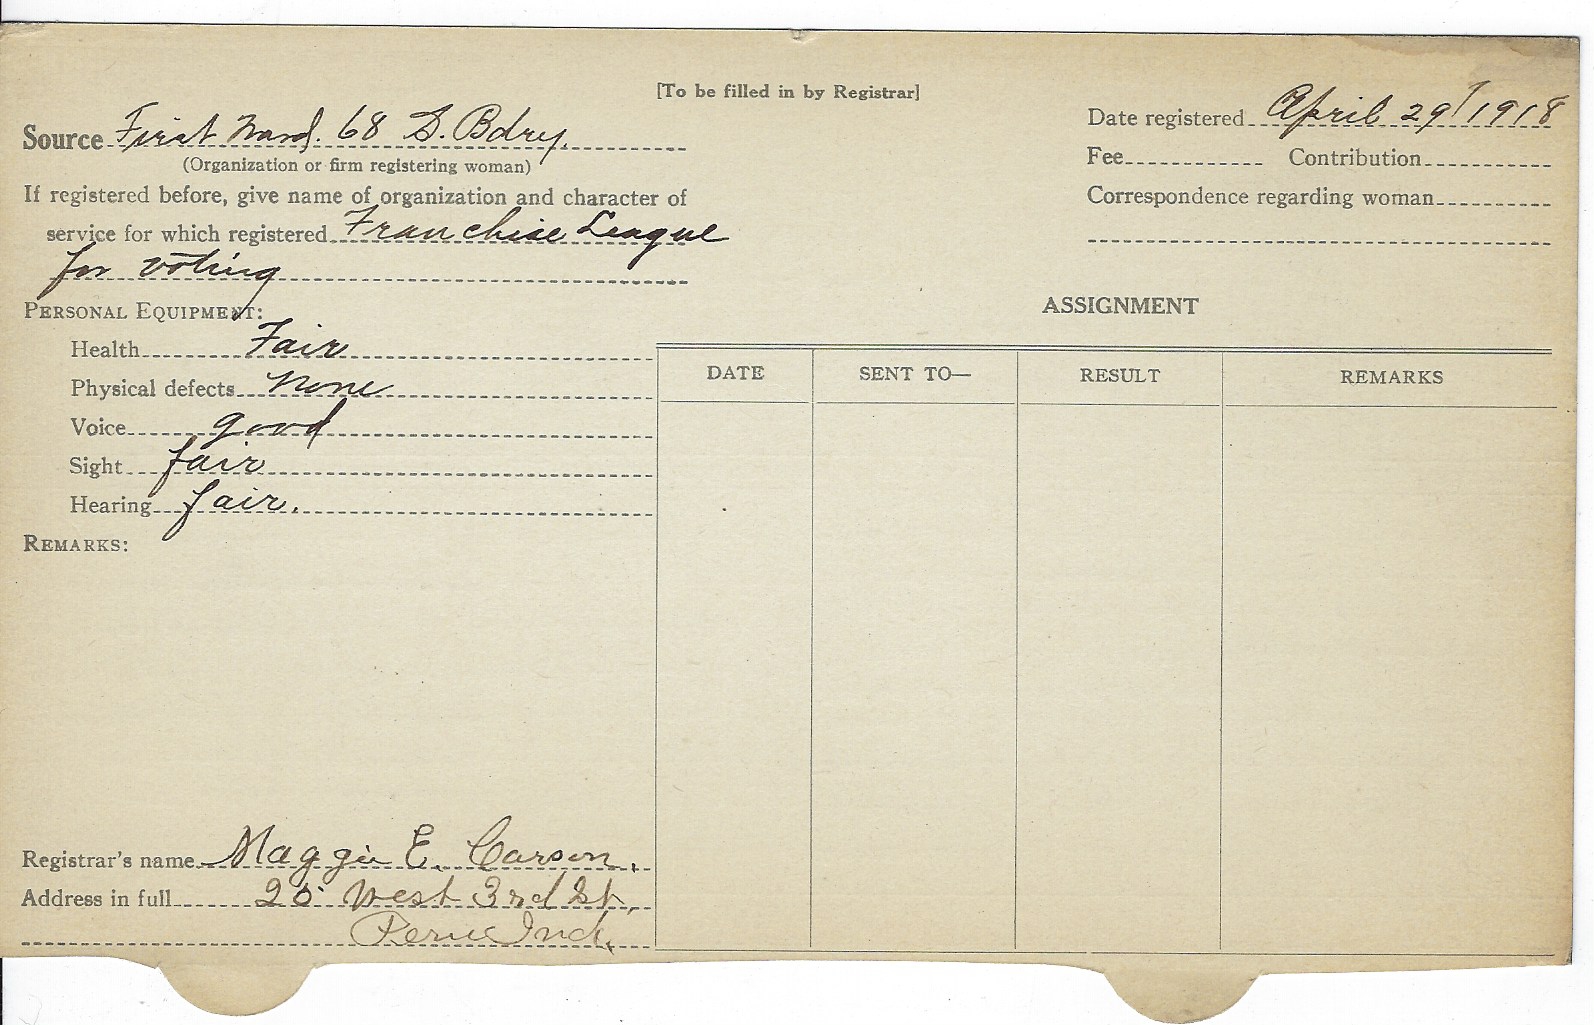 [To be filled in by Registrar]
Source First Ward. 68 S. Bdry.
(Organization or firm registering woman)
If registered before, give name of organization and character of
service for which registered Franchise League
for voting
PERSONAL EQUIPMENT:
Health Fair
Physical defects None
Voice good
Sight fair
Hearing fair.
REMARKS:
Registrar's name Maggie E. Carson.
Address in full 25 West 3rd St,
Peru Ind.
Date registered April 29 1918
Fee Contribution
Correspondence regarding woman
ASSIGNMENT
DATE SENT TO— RESULT REMARKS